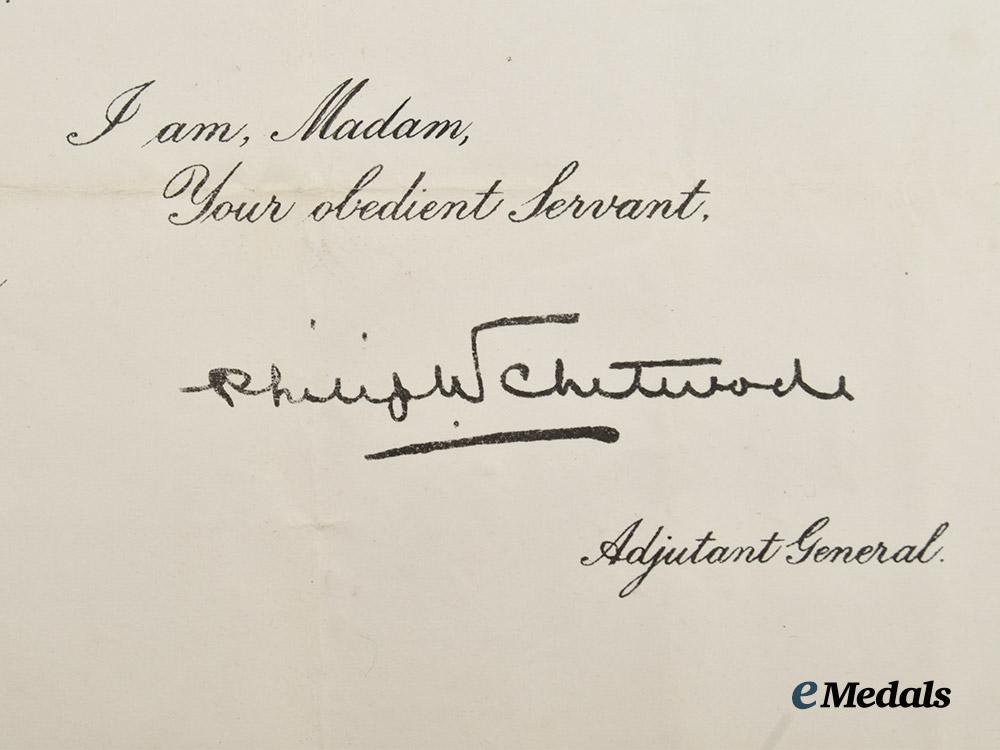 I am, Madam,
Your obedient Servant,
Philip W Chetwode
Adjutant General.
eMedals